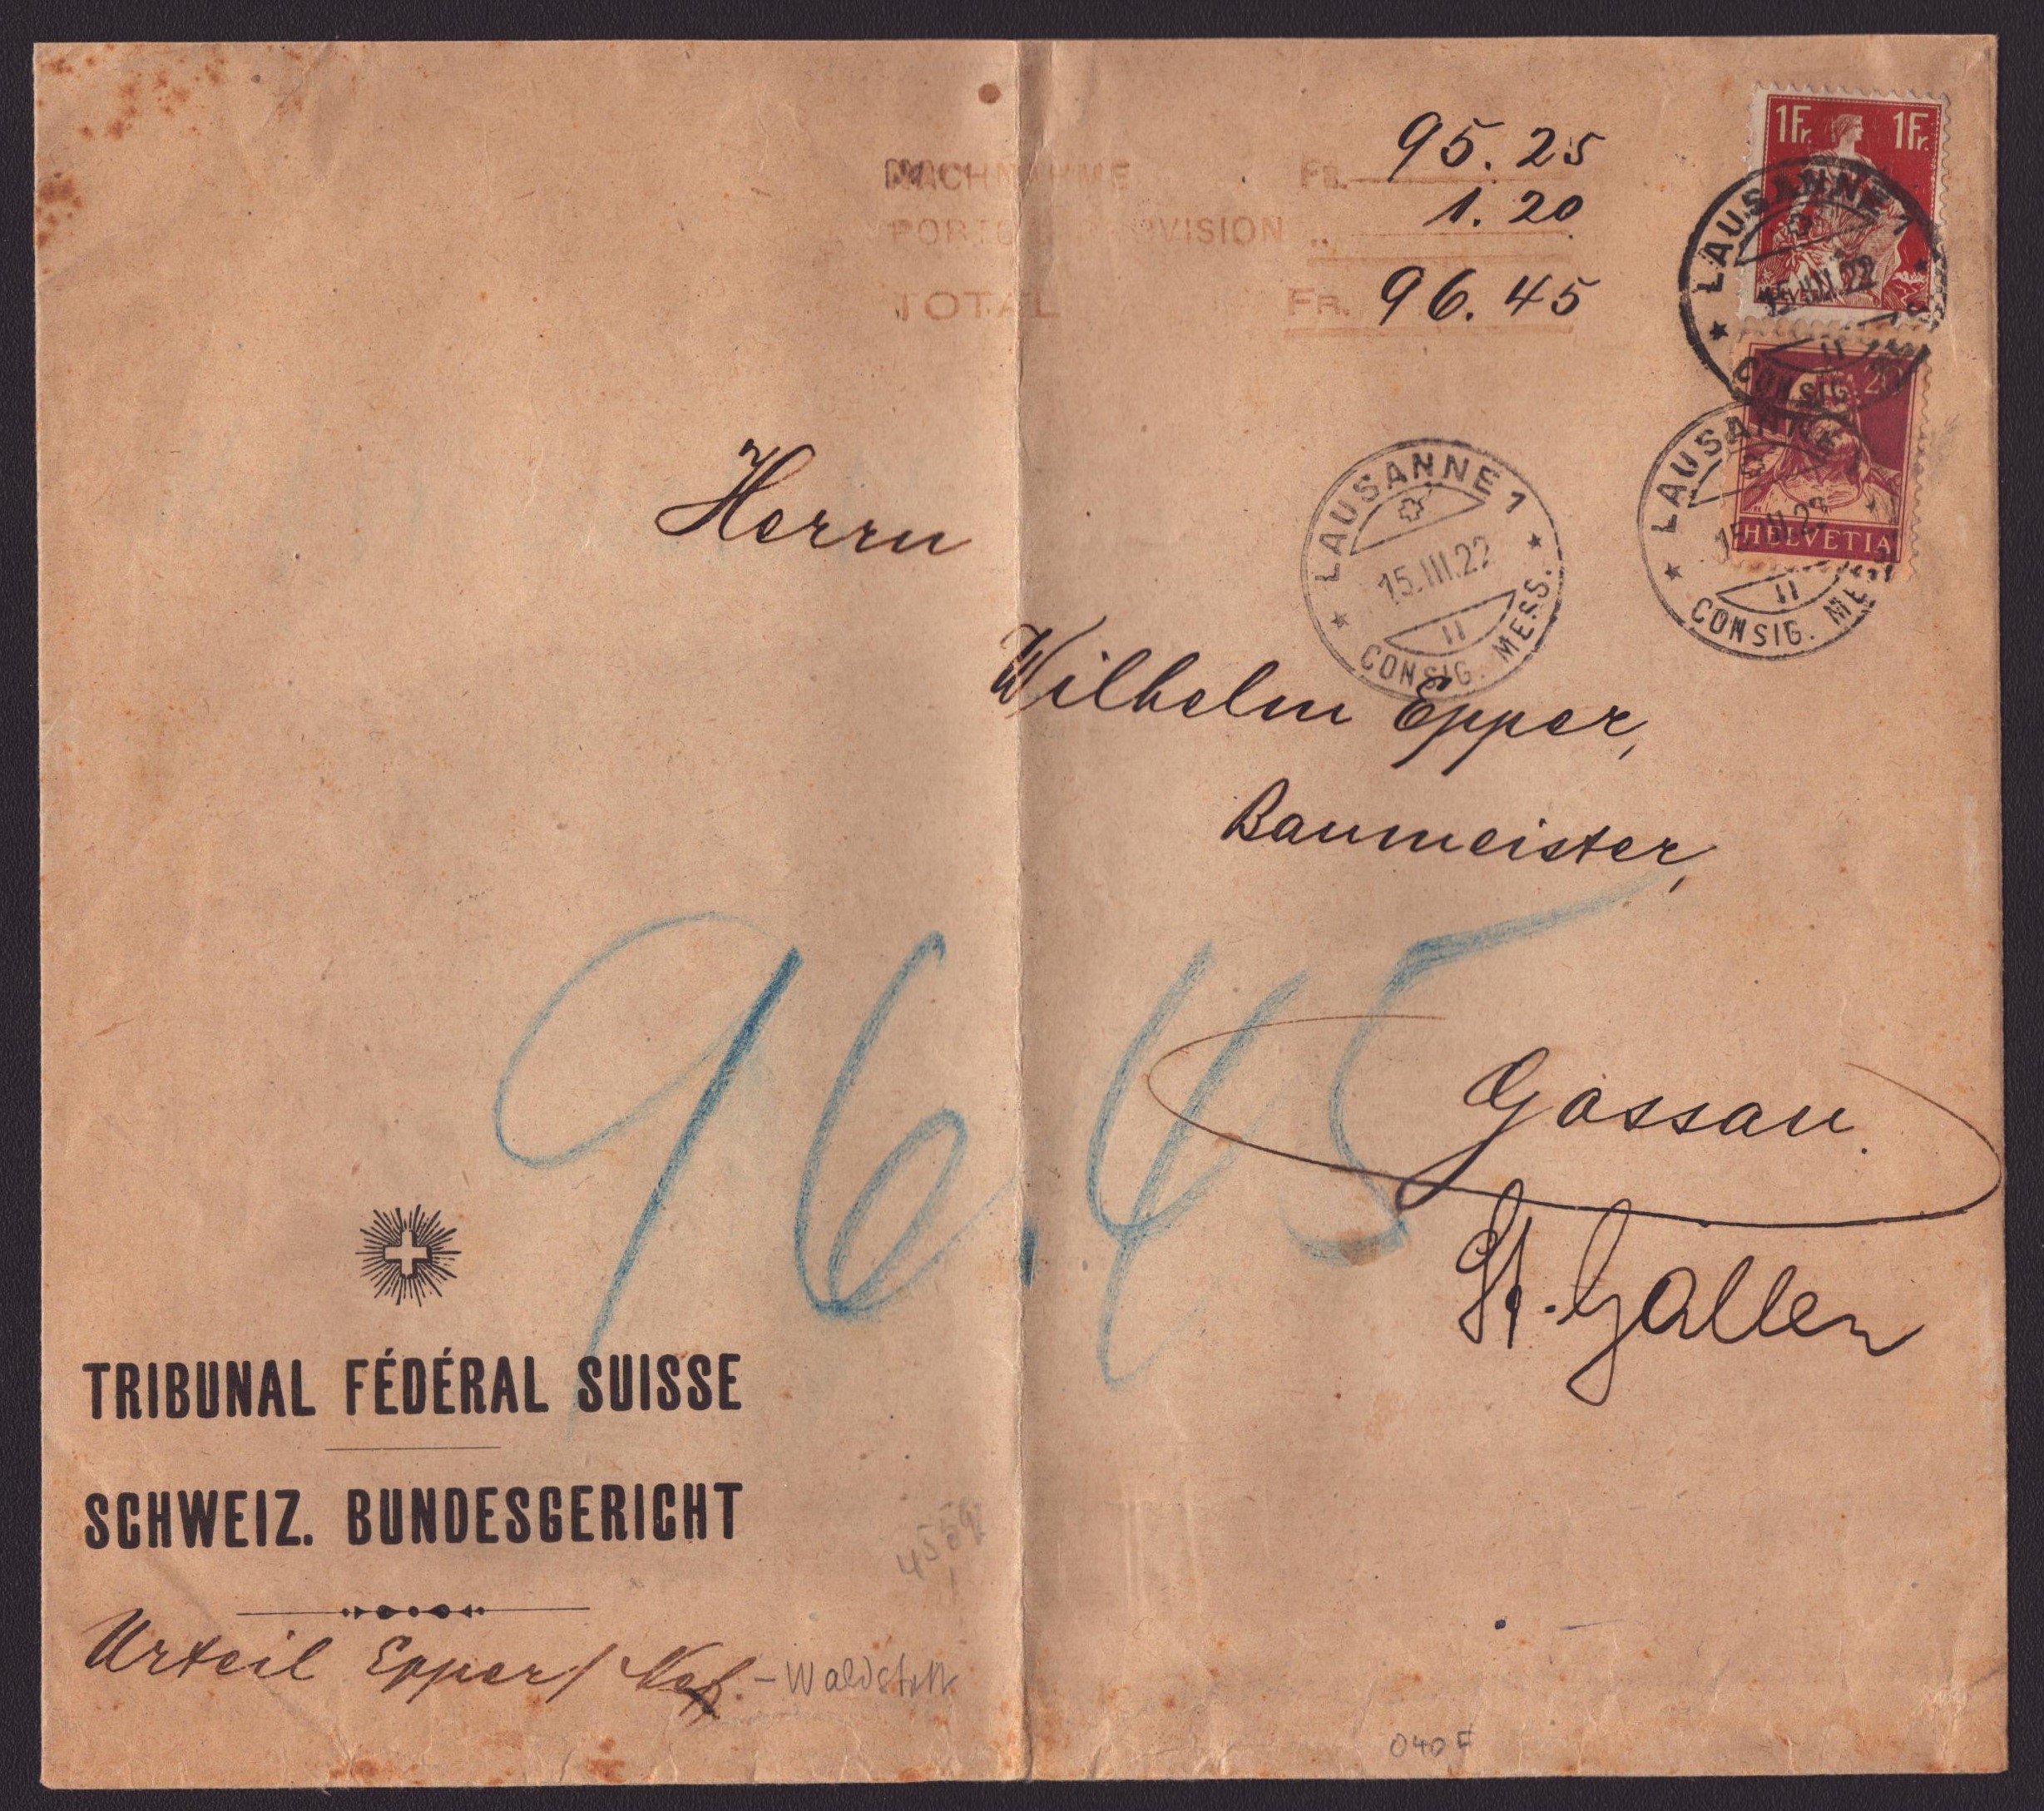 NACHNAHME Fr. 95.25
PORTO & PROVISION „ 1.20
TOTAL FR. 96.45
1Fr. 1Fr.
LAUSANNE 1
15.III.22
CONSIG.
20
HELVETIA
LAUSANNE
15.III.22
CONSIG. MESS.
LAUSANNE 1
15.III.22
CONSIG. MESS.
Herrn
Wilhelm Epper,
Baumeister,
96.45
Gossau.
St. Gallen
TRIBUNAL FÉDÉRAL SUISSE
SCHWEIZ. BUNDESGERICHT
Urteil Epper/Nef. - Waldstatt
040 F